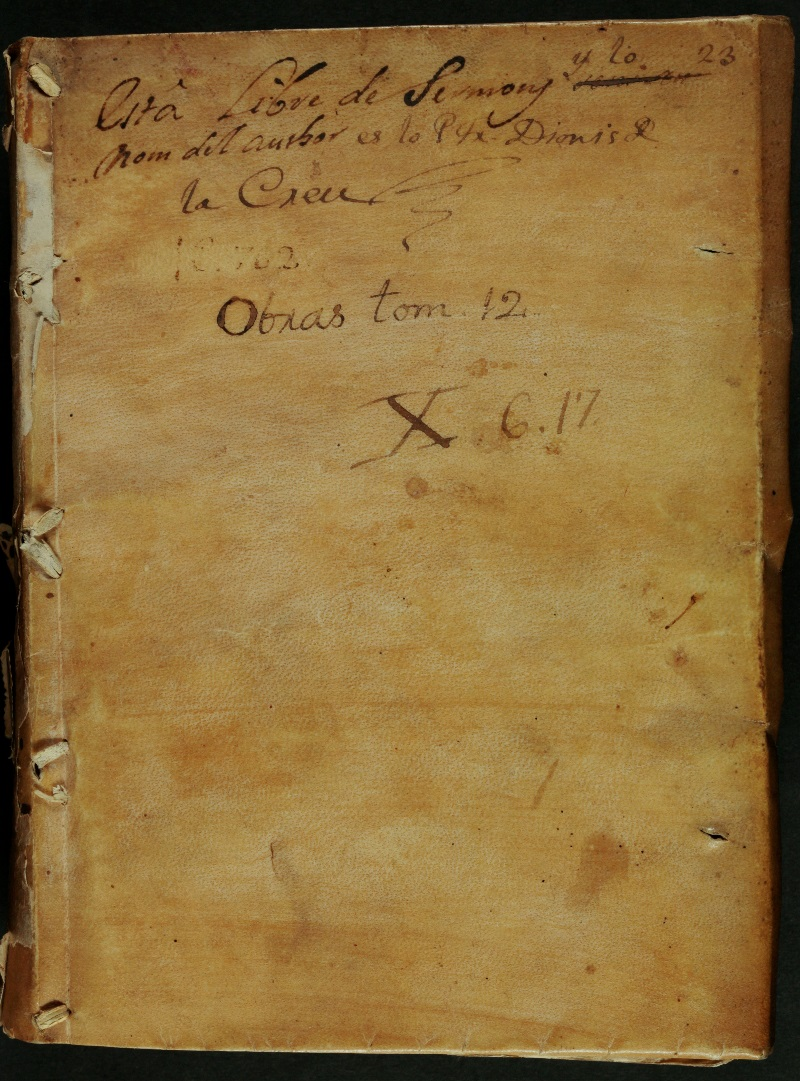 Està Libre de Sermons y lo 23
nom del author es lo P. Fr. Dionis d
la Creu
Obras tom. 12.
X. 6.17